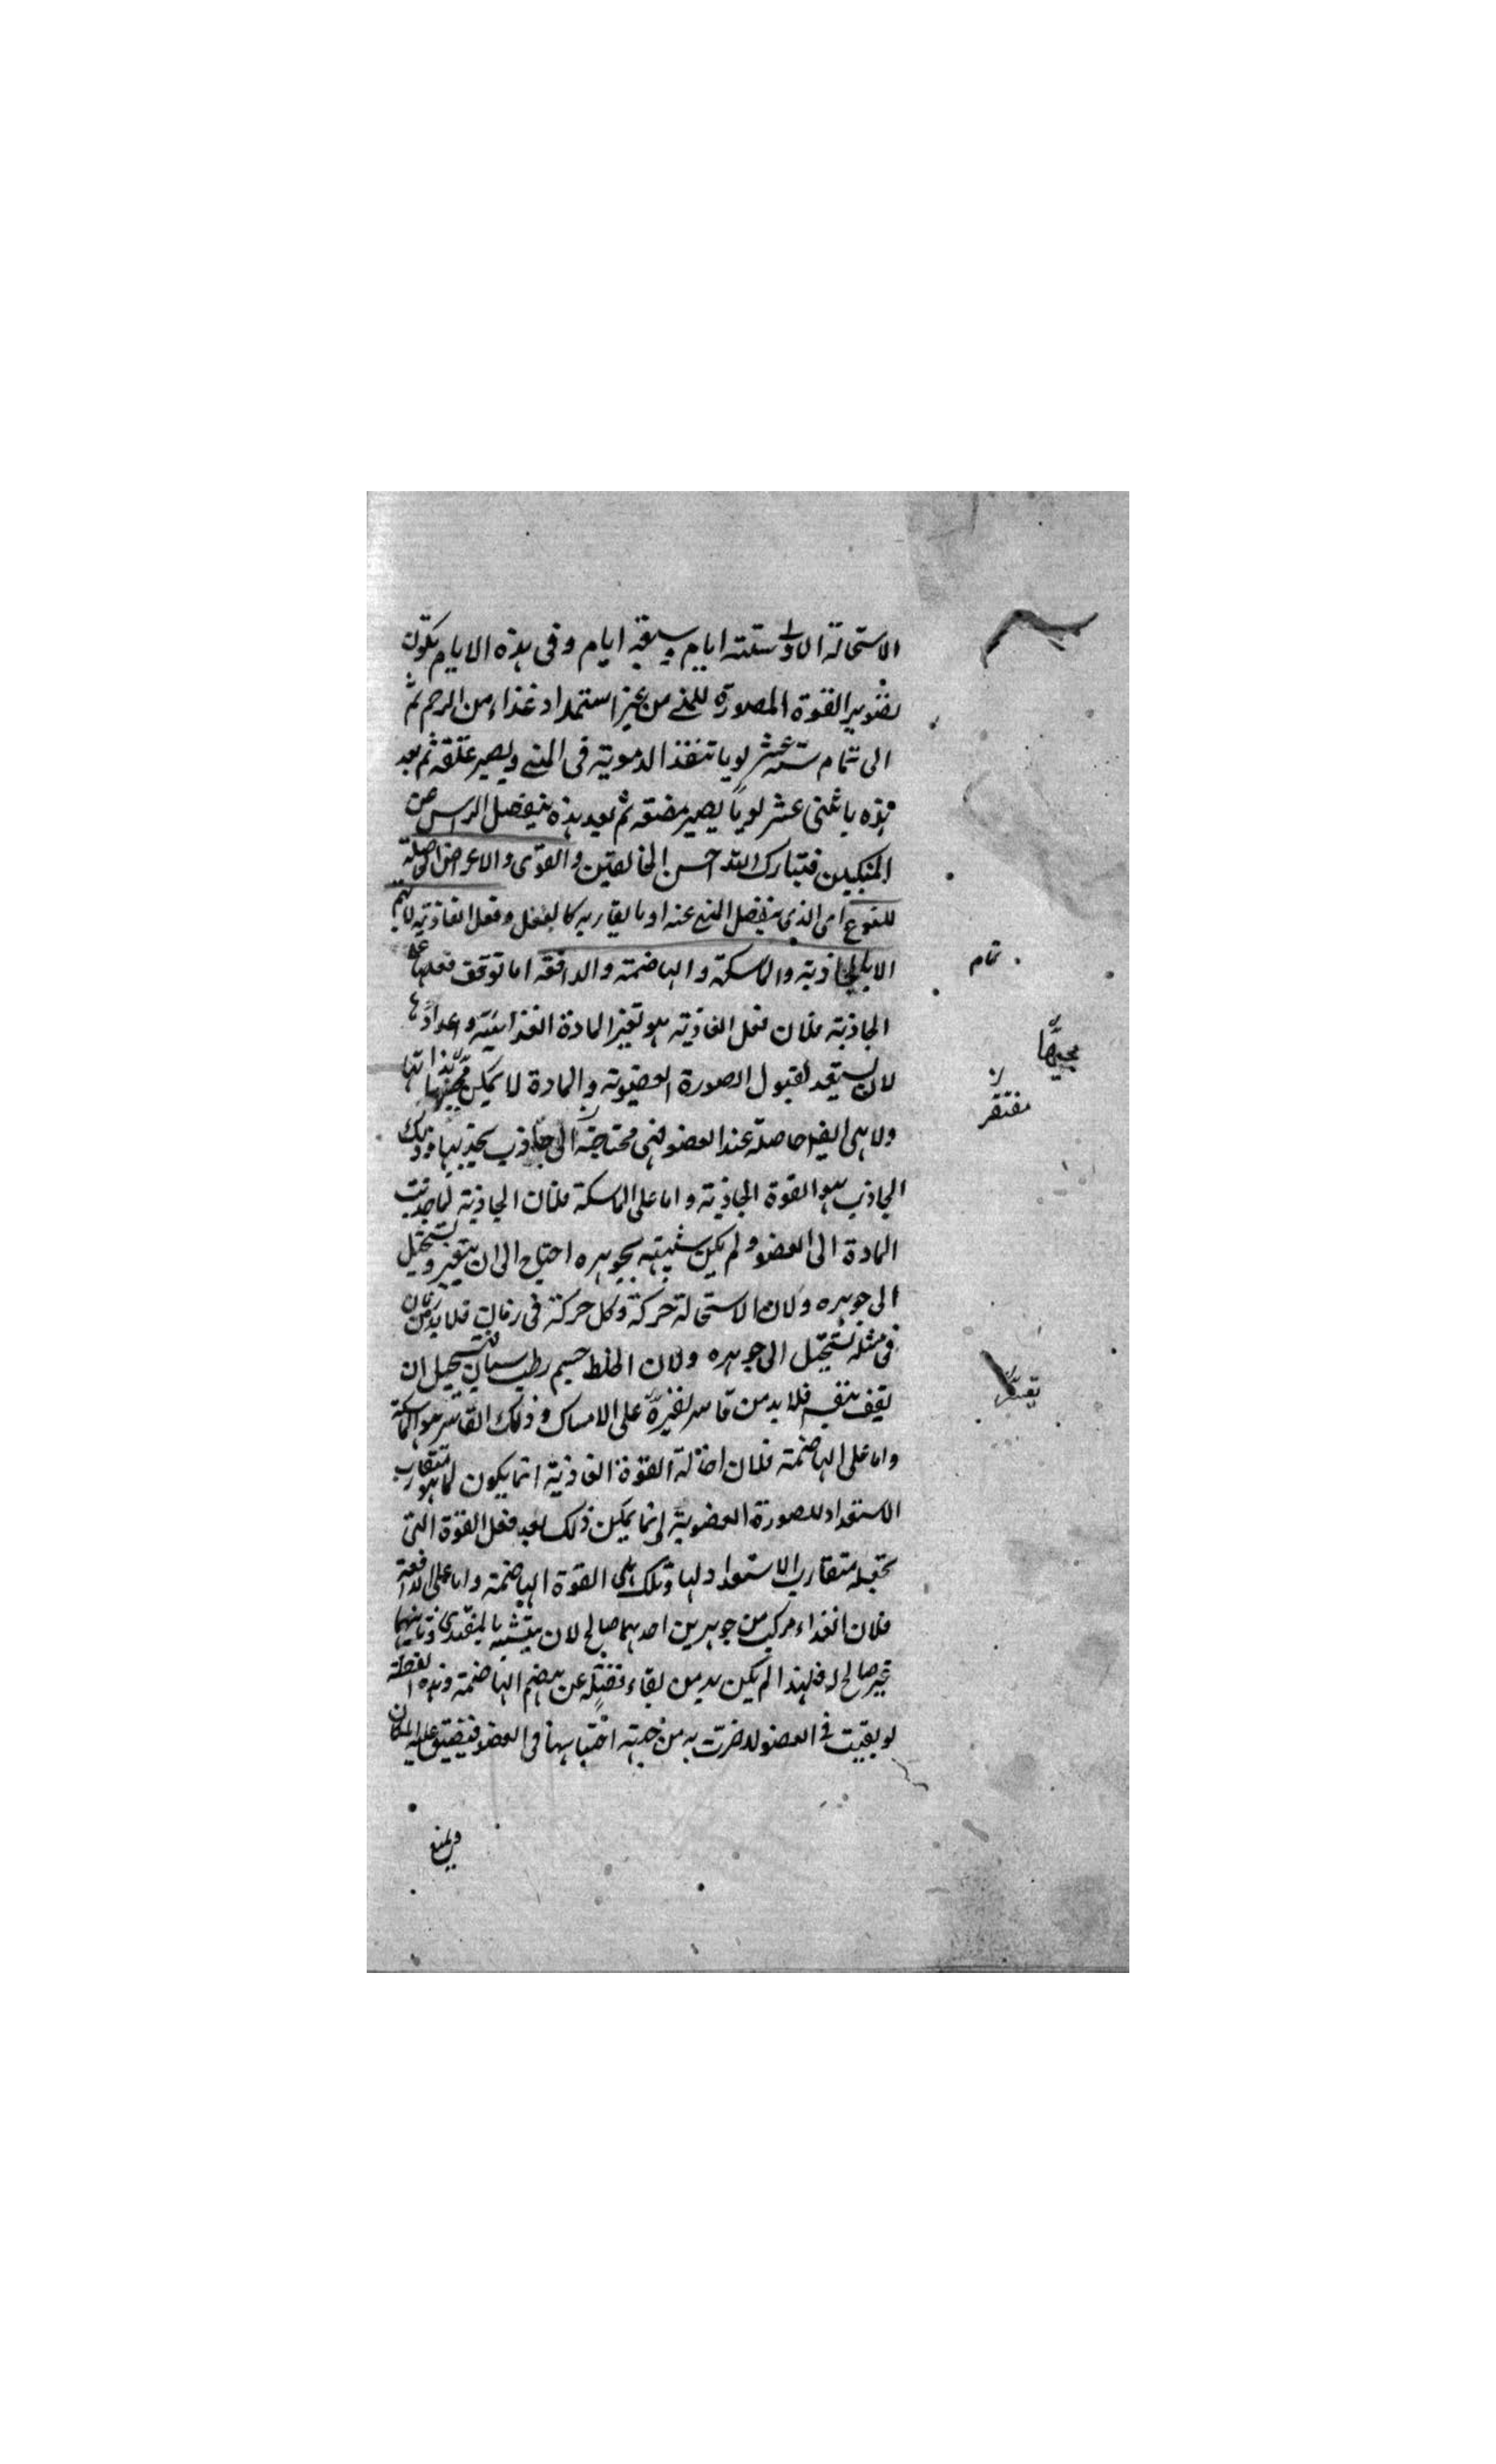 الاستحالة الاولى ستة ايام وسبعة ايام وفى هذه الايام يكون
تصوير القوة المصورة للمنى من غير استمداد غذاء من الرحم ثم
الى تمام ستة عشر يوما تنفذ الدموية فى المنى ويصير علقة ثم بعد
هذه باثنى عشر يوما يصير مضغة ثم بعد هذه ينفصل الراس عن
المنكبين فتبارك الله احسن الخالقين والقوى والاعراض
للنوع اى الذى ينفصل المنى عنه او ما يقاربه كالبغل وفعل الغاذية لا يتم
الا بالجاذبة والماسكة والهاضمة والدافعة اما توقف فعلها على
الجاذبة فلان فعل الغاذية هو تغير المادة الغذائية واعدادها
لان يستعد لقبول الصورة العضوية والمادة لا يمكن بذاتها
ولا هى ايضا حاصلة عند العضو فهى محتاجة الى جاذب يجذبها وذلك
الجاذب هو القوة الجاذبة واما على الماسكة فلان الجاذبة لما جذبت
المادة الى العضو ولم يكن شبيهة بجوهره احتاج الى ان يتغير ويستحيل
الى جوهره ولان الاستحالة حركة وكل حركة فى زمان فلا بد من زمان
فى مثله تستحيل الى جوهره ولان الخلط جسم رطب سيال يستحيل ان
يقف بنفسه فلا بد من قاسر على الامساك وذلك القاسر هو الماسكة
واما على الهاضمة فلان احالة القوة الغاذية انما يكون لما هو متقارب
الاستعداد للصورة العضوية وانما يمكن ذلك بعد فعل القوة التى
تجعله متقارب الاستعداد لها وتلك هى القوة الهاضمة واما على الدافعة
فلان الغذاء مركب من جوهرين احدهما صالح لان يتشبه بالمغتذى وثانيهما
غير صالح له فلهذا لم يكن بد من بقاء فضلة عن هضم الهاضمة وهذه الفضلة
لو بقيت فى العضو لاضرت به من جهة احتباسها فى العضو فتضيق عليه المكان
ويمنع
تمام
مجيئها
مفتقر